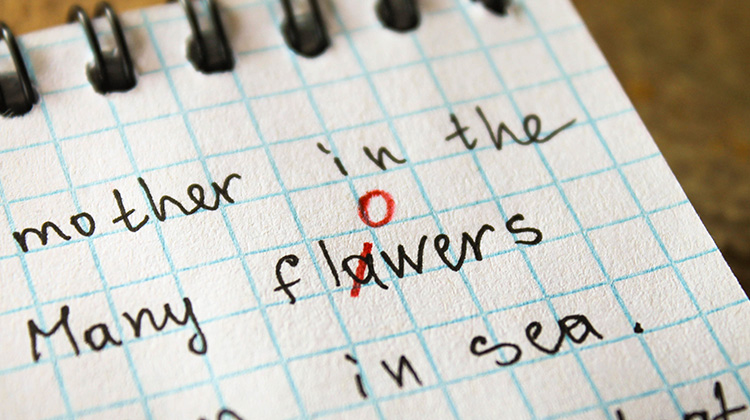 mother in the
o
Many flawers
in sea.